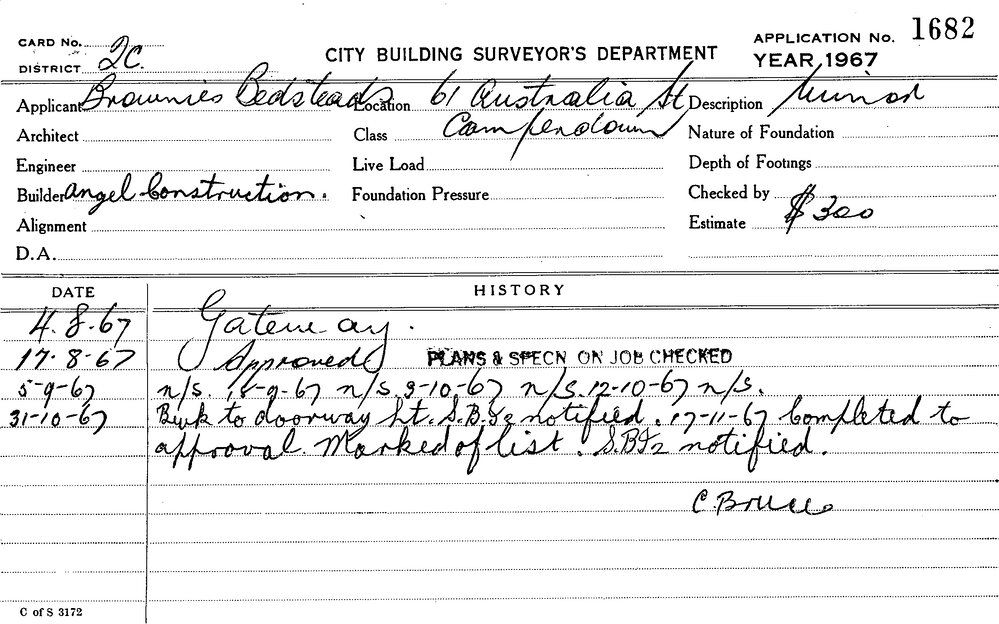 CARD No.
DISTRICT 2C.
CITY BUILDING SURVEYOR'S DEPARTMENT
APPLICATION No. 1682
YEAR 1967
Applicant Brownies Bedsteads Location 61 Australia St Description Minor
Architect Class Camperdown Nature of Foundation
Engineer Live Load Depth of Footings
Builder Angel Construction. Foundation Pressure Checked by
Alignment Estimate $300
D.A.
DATE HISTORY
4.8.67 Gateway.
17.8-67 Approved PLANS & SPECN ON JOB CHECKED
5-9-67 n/s. 15-9-67 n/s. 3-10-67 n/s. 12-10-67 n/s.
31-10-67 Bwk to doorway ht. S.B.I2 notified. 17-11-67 Completed to
approval. Marked of list. S.B.I2 notified.
C. Bruce
C of S 3172